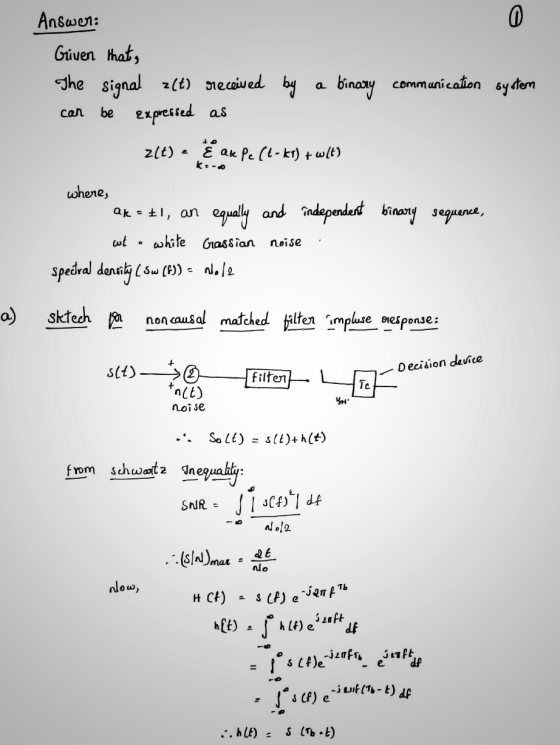 ①
Answer:
Given that,
The signal z(t) received by a binary communication system
can be expressed as
z(t) = Σ_{k=-∞}^{+∞} ak Pc (t-kT) + w(t)
where,
ak = ±1, an equally and independent binary sequence,
wt = white Grassian noise
spectral density (Sw(f)) = No/2
a) sktech for noncausal matched filter impluse response:
s(t) + Σ Filter Tc Decision device
+ n(t)
noise
∴ So(t) = s(t)+h(t)
from schwartz Inequality:
SNR = ∫_{-∞}^{∞} |s(f)²| / No/2 df
∴ (S/N)max = 2E/No
Now,
H(f) = s(f) e^{-j2πf Tb}
h(t) = ∫_{-∞}^{∞} h(f) e^{j2πft} df
= ∫_{-∞}^{∞} s(f) e^{-j2πfTb} - e^{j2πft} df
= ∫_{-∞}^{∞} s(f) e^{-j2πf(Tb-t)} df
∴ h(t) = s(Tb-t)